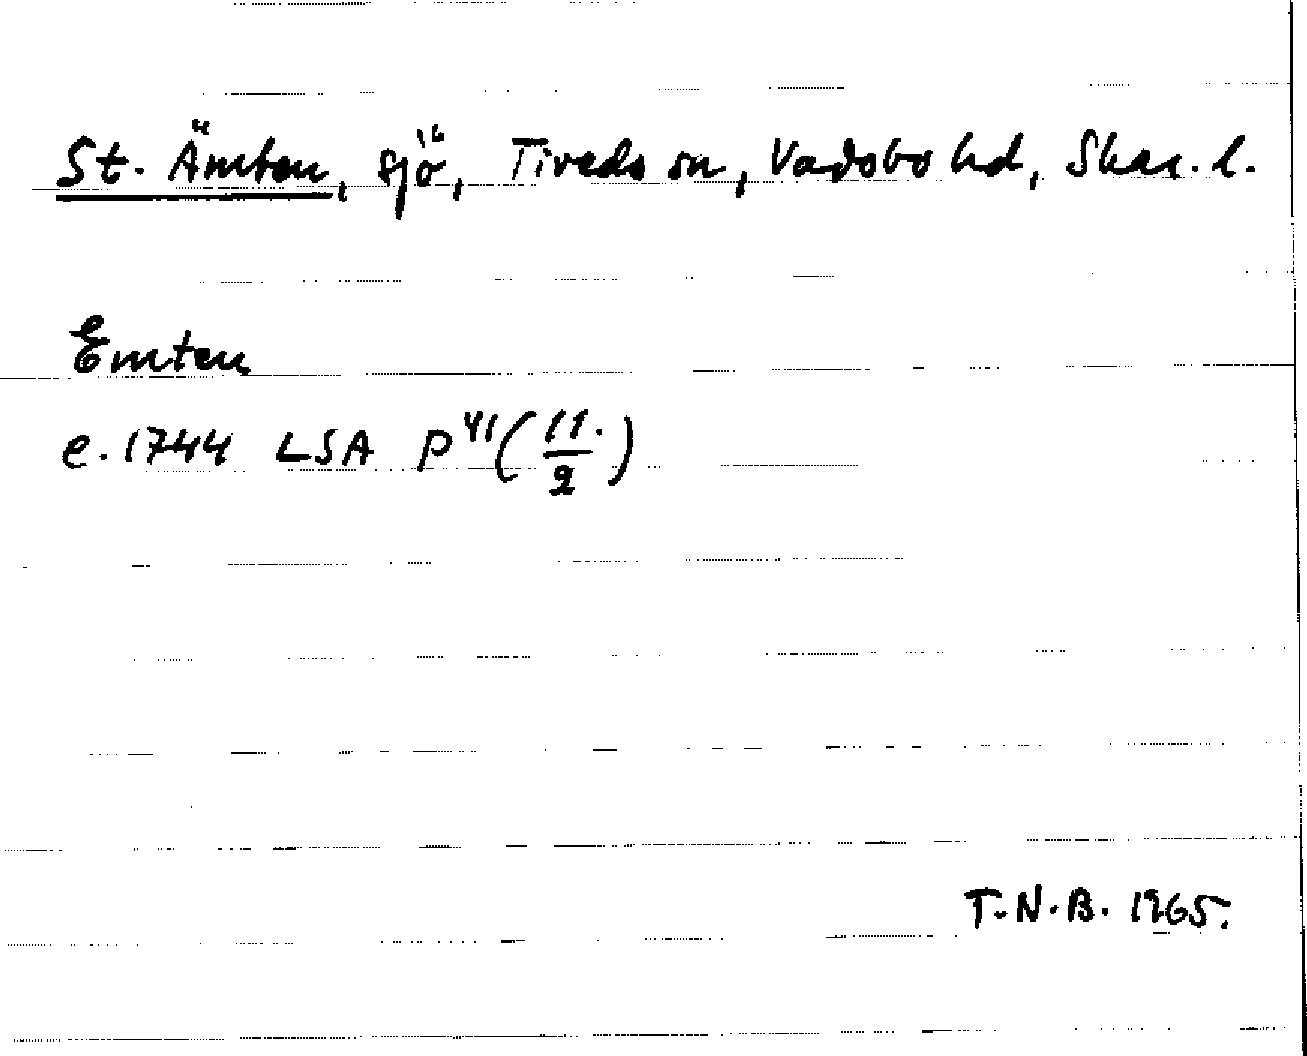 St. Ämten, sjö, Tiveds sn, Vadsbo hd, Skar. l.
Emten
e. 1744 LSA P⁴¹(11./2)
T.N.B. 1965.